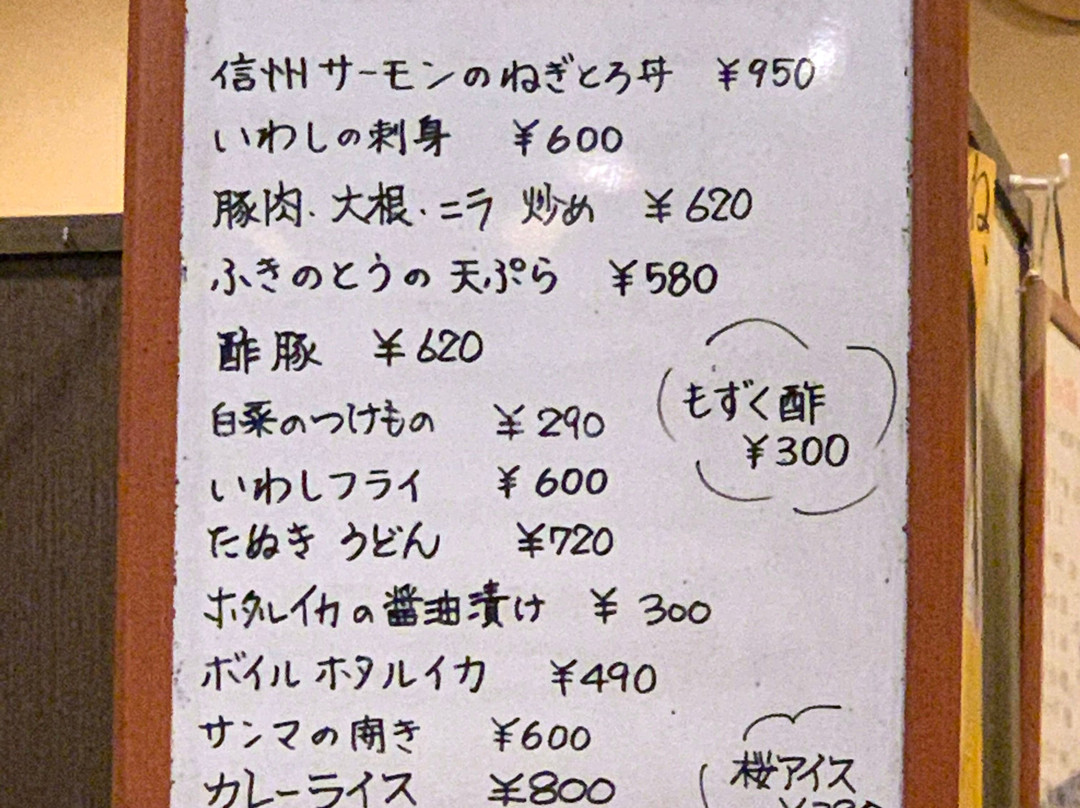 信州サーモンのねぎとろ丼 ¥950
いわしの刺身 ¥600
豚肉・大根・ニラ 炒め ¥620
ふきのとうの天ぷら ¥580
酢豚 ¥620
白菜のつけもの ¥290
もずく酢
¥300
いわしフライ ¥600
たぬきうどん ¥720
ホタルイカの醤油漬け ¥300
ボイルホタルイカ ¥490
サンマの開き ¥600
カレーライス ¥800
桜アイス